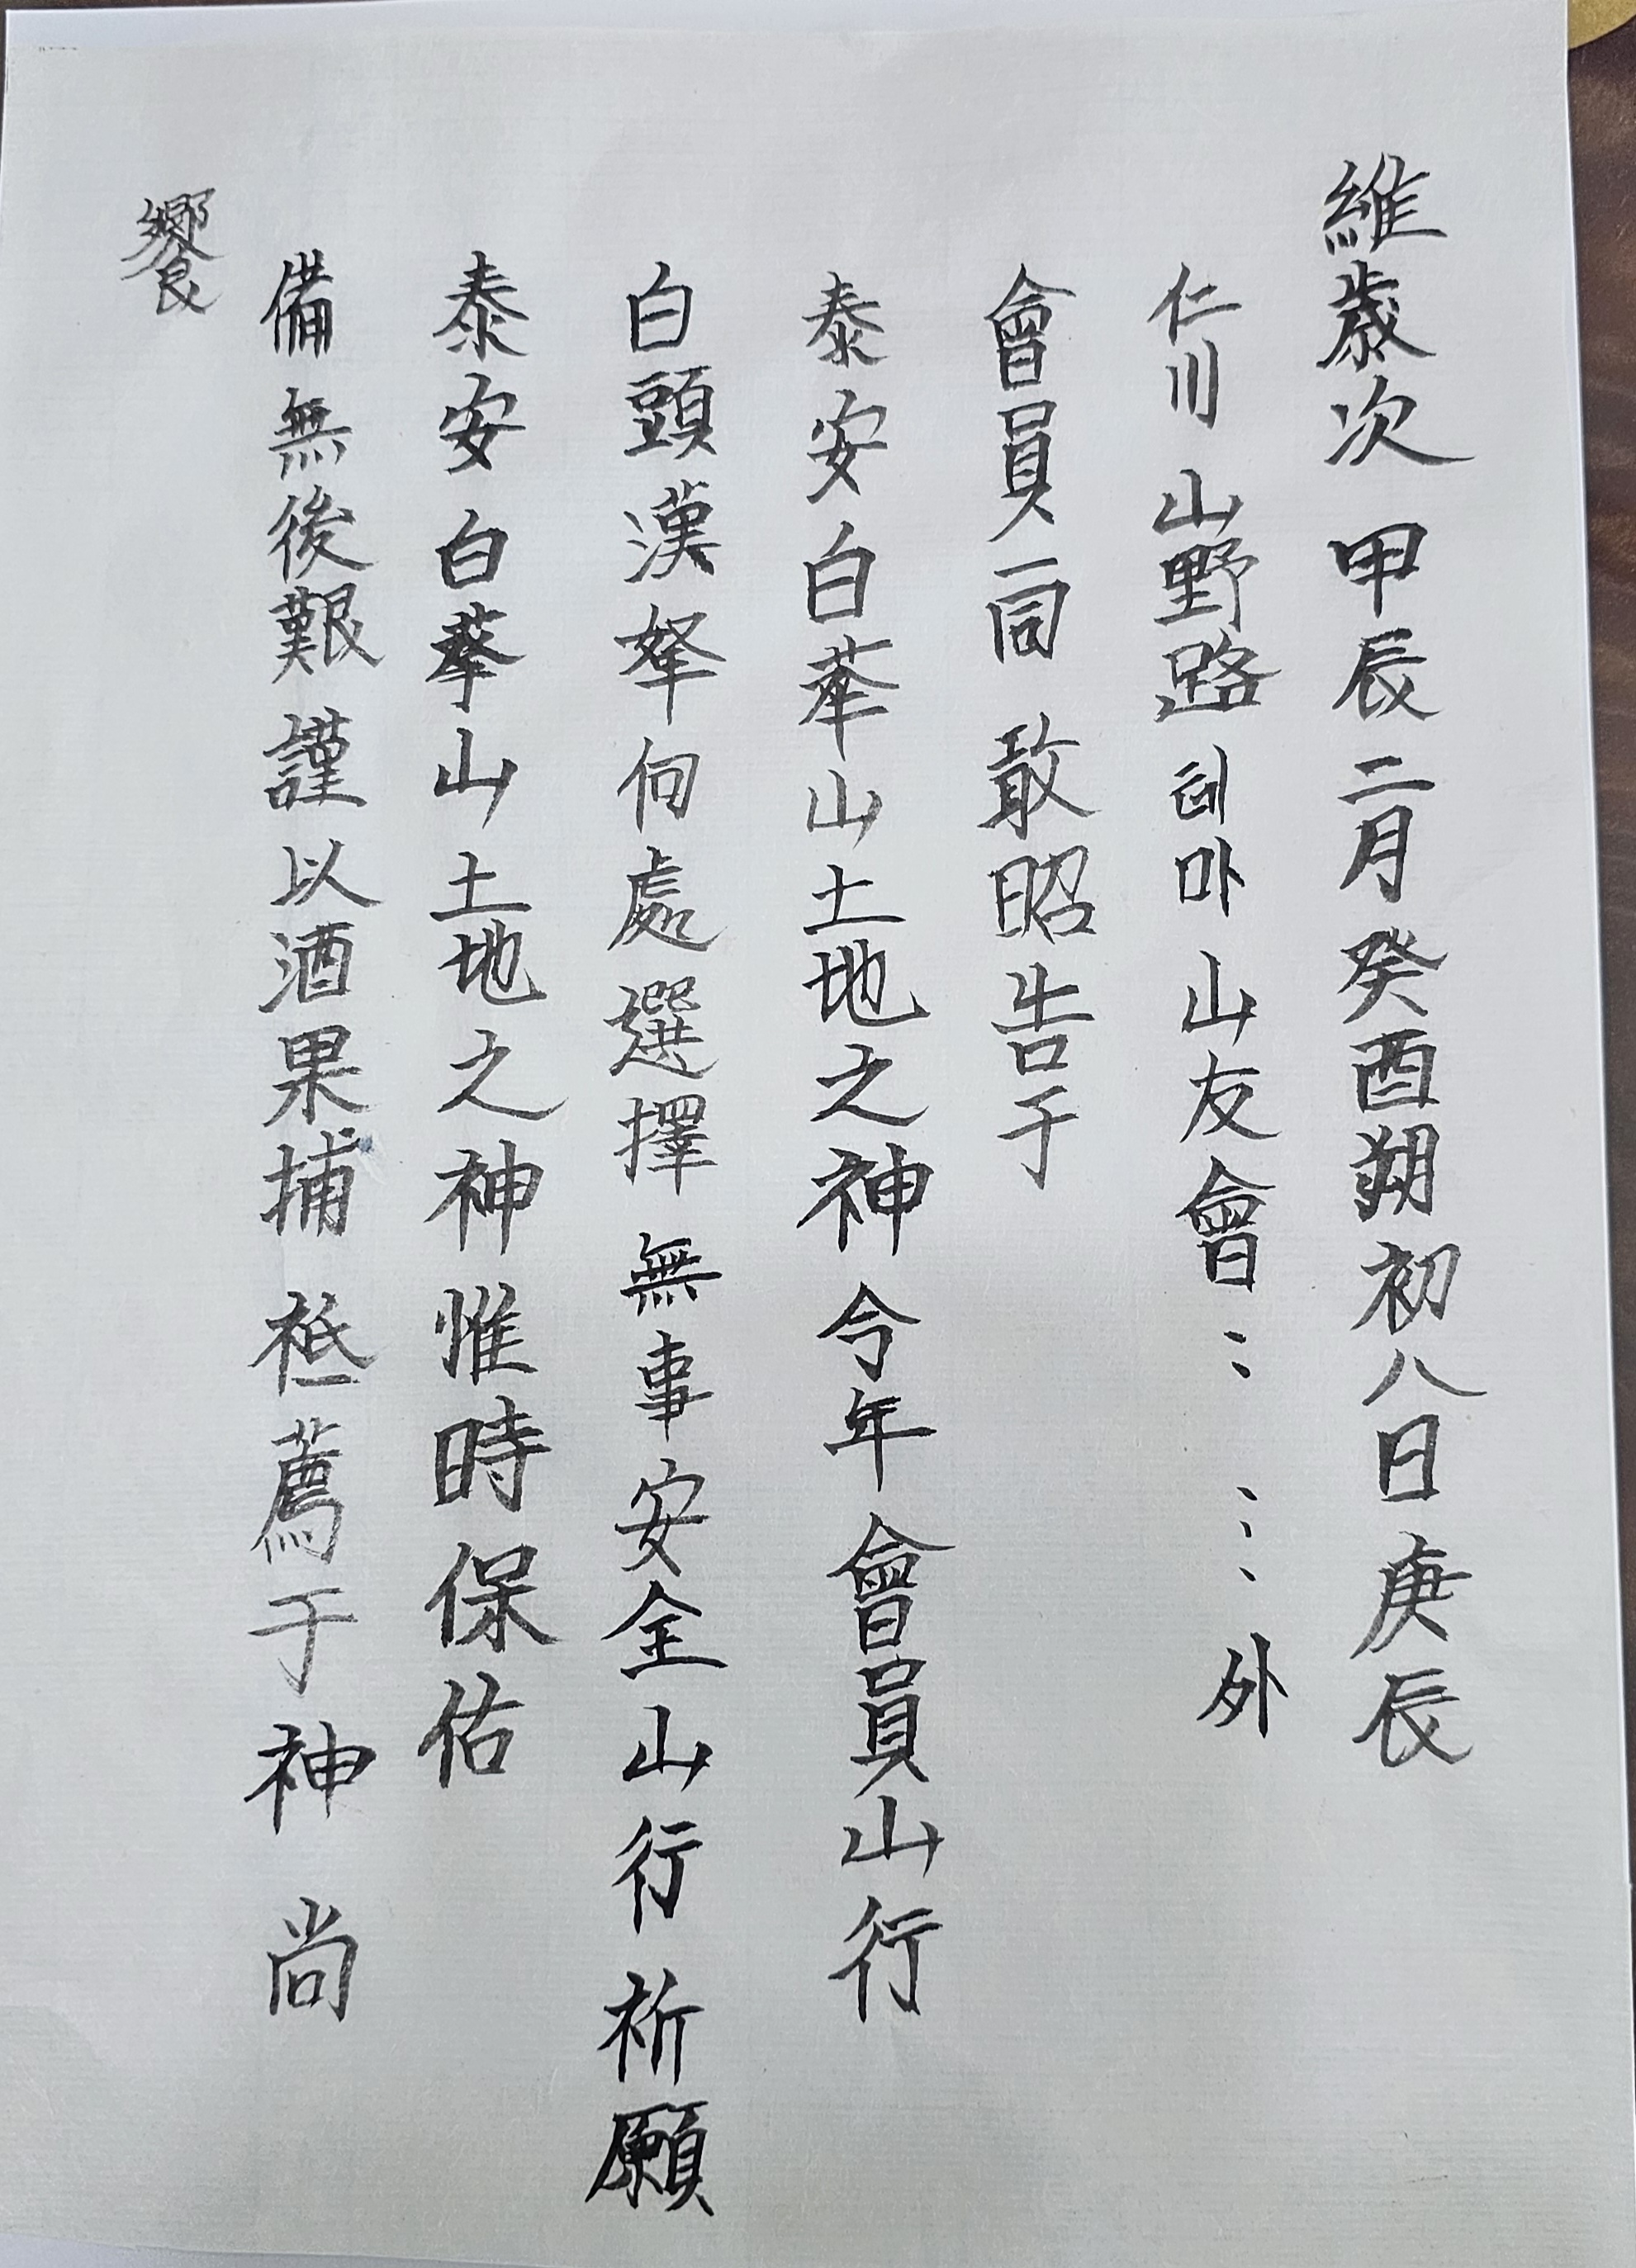 維歲次 甲辰 二月 癸酉朔 初八日 庚辰
仁川 山野路 테마 山友會 : ⋮ 外
會員一同 敢昭告于
泰安白華山土地之神 今年 會員山行
白頭漢拏 何處選擇 無事安全山行 祈願
泰安白華山土地之神 惟時保佑
備無後艱 謹以酒果捕 祗薦于神 尚
饗